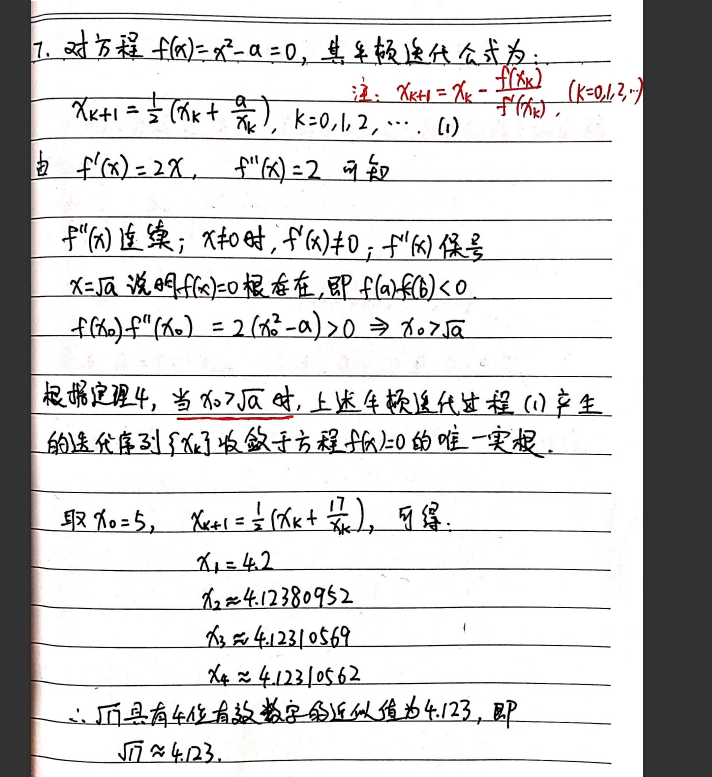 7. 对方程 f(x)=x²-a=0, 其牛顿迭代公式为:
注: xₖ₊₁ = xₖ - f(xₖ)/f'(xₖ), (k=0,1,2,…)
xₖ₊₁ = 1/2 (xₖ + a/xₖ), k=0,1,2, …. (1)
由 f'(x)=2x, f''(x)=2 可知
f''(x)连续; x≠0时, f'(x)≠0; f''(x)保号
x=√a 说明f(x)=0根存在, 即 f(a)f(b)<0.
f(x₀)f''(x₀) = 2(x₀²-a)>0 ⇒ x₀>√a
根据定理4, 当x₀>√a时, 上述牛顿迭代过程(1)产生
的迭代序列{xₖ}收敛于方程f(x)=0的唯一实根.
取x₀=5, xₖ₊₁=1/2(xₖ+17/xₖ), 可得:
x₁=4.2
x₂≈4.12380952
x₃≈4.12310569
x₄≈4.12310562
∴√17具有4位有效数字的近似值为4.123, 即
√17≈4.123.